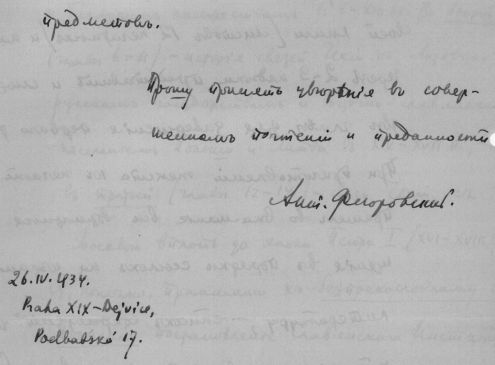 предметовъ.
Прошу принять увѣреніе въ совер-
шенномъ почтеніи и преданности
Ант. Флоровскій.
26.IV.1934.
Praha XIX-Dejvice,
Podbabská 17.